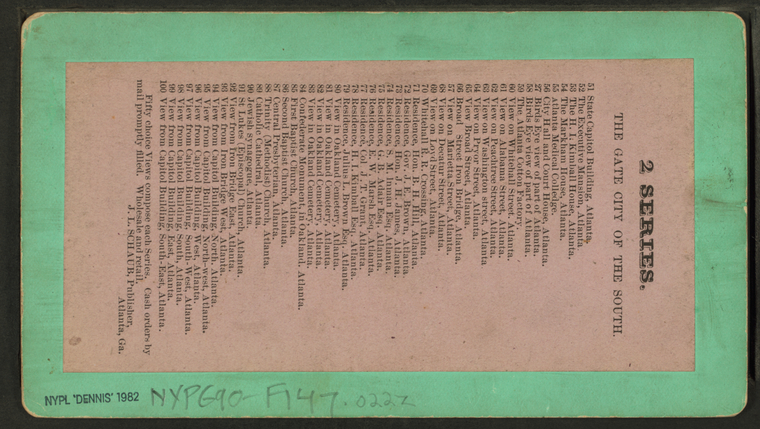 2 SERIES.
THE GATE CITY OF THE SOUTH.
51 State Capitol Building, Atlanta.
52 The Executive Mansion, Atlanta
53 The H. I. Kimball House, Atlanta.
54 The Markham House, Atlanta.
55 Atlanta Medical Colledge.
56 City Hall and Court House, Atlanta.
27 Birds Eye view of part Atlanta.
58 Birds Eye view of part of Atlanta.
59 The Atlanta Cotton Factory.
60 View on Whitehall Street, Atlanta.
61 View on Alabama Street, Atlanta.
62 View on Peachtree Street, Atlanta.
63 View on Washington street, Atlanta
64 View on Pryor Street, Atlanta.
65 View Broad Street, Atlanta.
66 Broad Street Iron Bridge, Atlanta.
57 View on Marietta Street, Atlanta.
68 View on Decatur Street, Atlanta.
69 View on Loyd Street, Atlanta.
70 Whitehall R. R. Crossing, Atlanta.
71 Residence, Hon. B. H. Hill, Atlanta.
72 Residence, Gov. J. E. Brown, Atlanta.
73 Residence, Hon. J. H. James, Atlanta.
74 Residence, S. M. Inman Esq. Atlanta.
75 Residence, Esq. Atlanta.
76 Residence, E. W. Marsh Esq. Atlanta.
77 Residence, Col. L. T. Grant, Atlanta.
78 Residence, King Esq. Atlanta.
79 Residence, Julius L. Brown Esq. Atlanta.
80 View in Oakland Cemetery, Atlanta.
81 View in Oakland Cemetery, Atlanta.
82 View in Oakland Cemetery, Atlanta.
83 View in Oakland Cemetery, Atlanta.
84 Confederate Monument, in Oakland, Atlanta.
85 First Baptist Church, Atlanta.
86 Second Baptist Church, Atlanta.
87 Central Presbyterian, Atlanta.
88 Trinity Methodist Church, Atlanta.
89 Catholic Cathedral, Atlanta.
90 Jewish Synagogue, Atlanta.
91 St Lukes Episcopal Church, Atlanta.
92 View from Iron Bridge East, Atlanta.
93 View from Iron Bridge West, Atlanta.
94 View from Capitol Building, North, Atlanta.
95 View from Capitol Building, North-west, Atlanta.
96 View from Capitol Building, West, Atlanta.
97 View from Capitol Building, South-West, Atlanta.
98 View from Capitol Building, South, Atlanta.
99 View from Capitol Building, East, Atlanta.
100 View from Capitol Building, South-East, Atlanta.
Fifty choice Views compose each Series. Cash orders by
mail promptly filled. Wholesale and retail.
J. L. SCHAUB, Publisher,
Atlanta, Ga.
NYPL "DENNIS" 1982 NYPG90-F147.0222